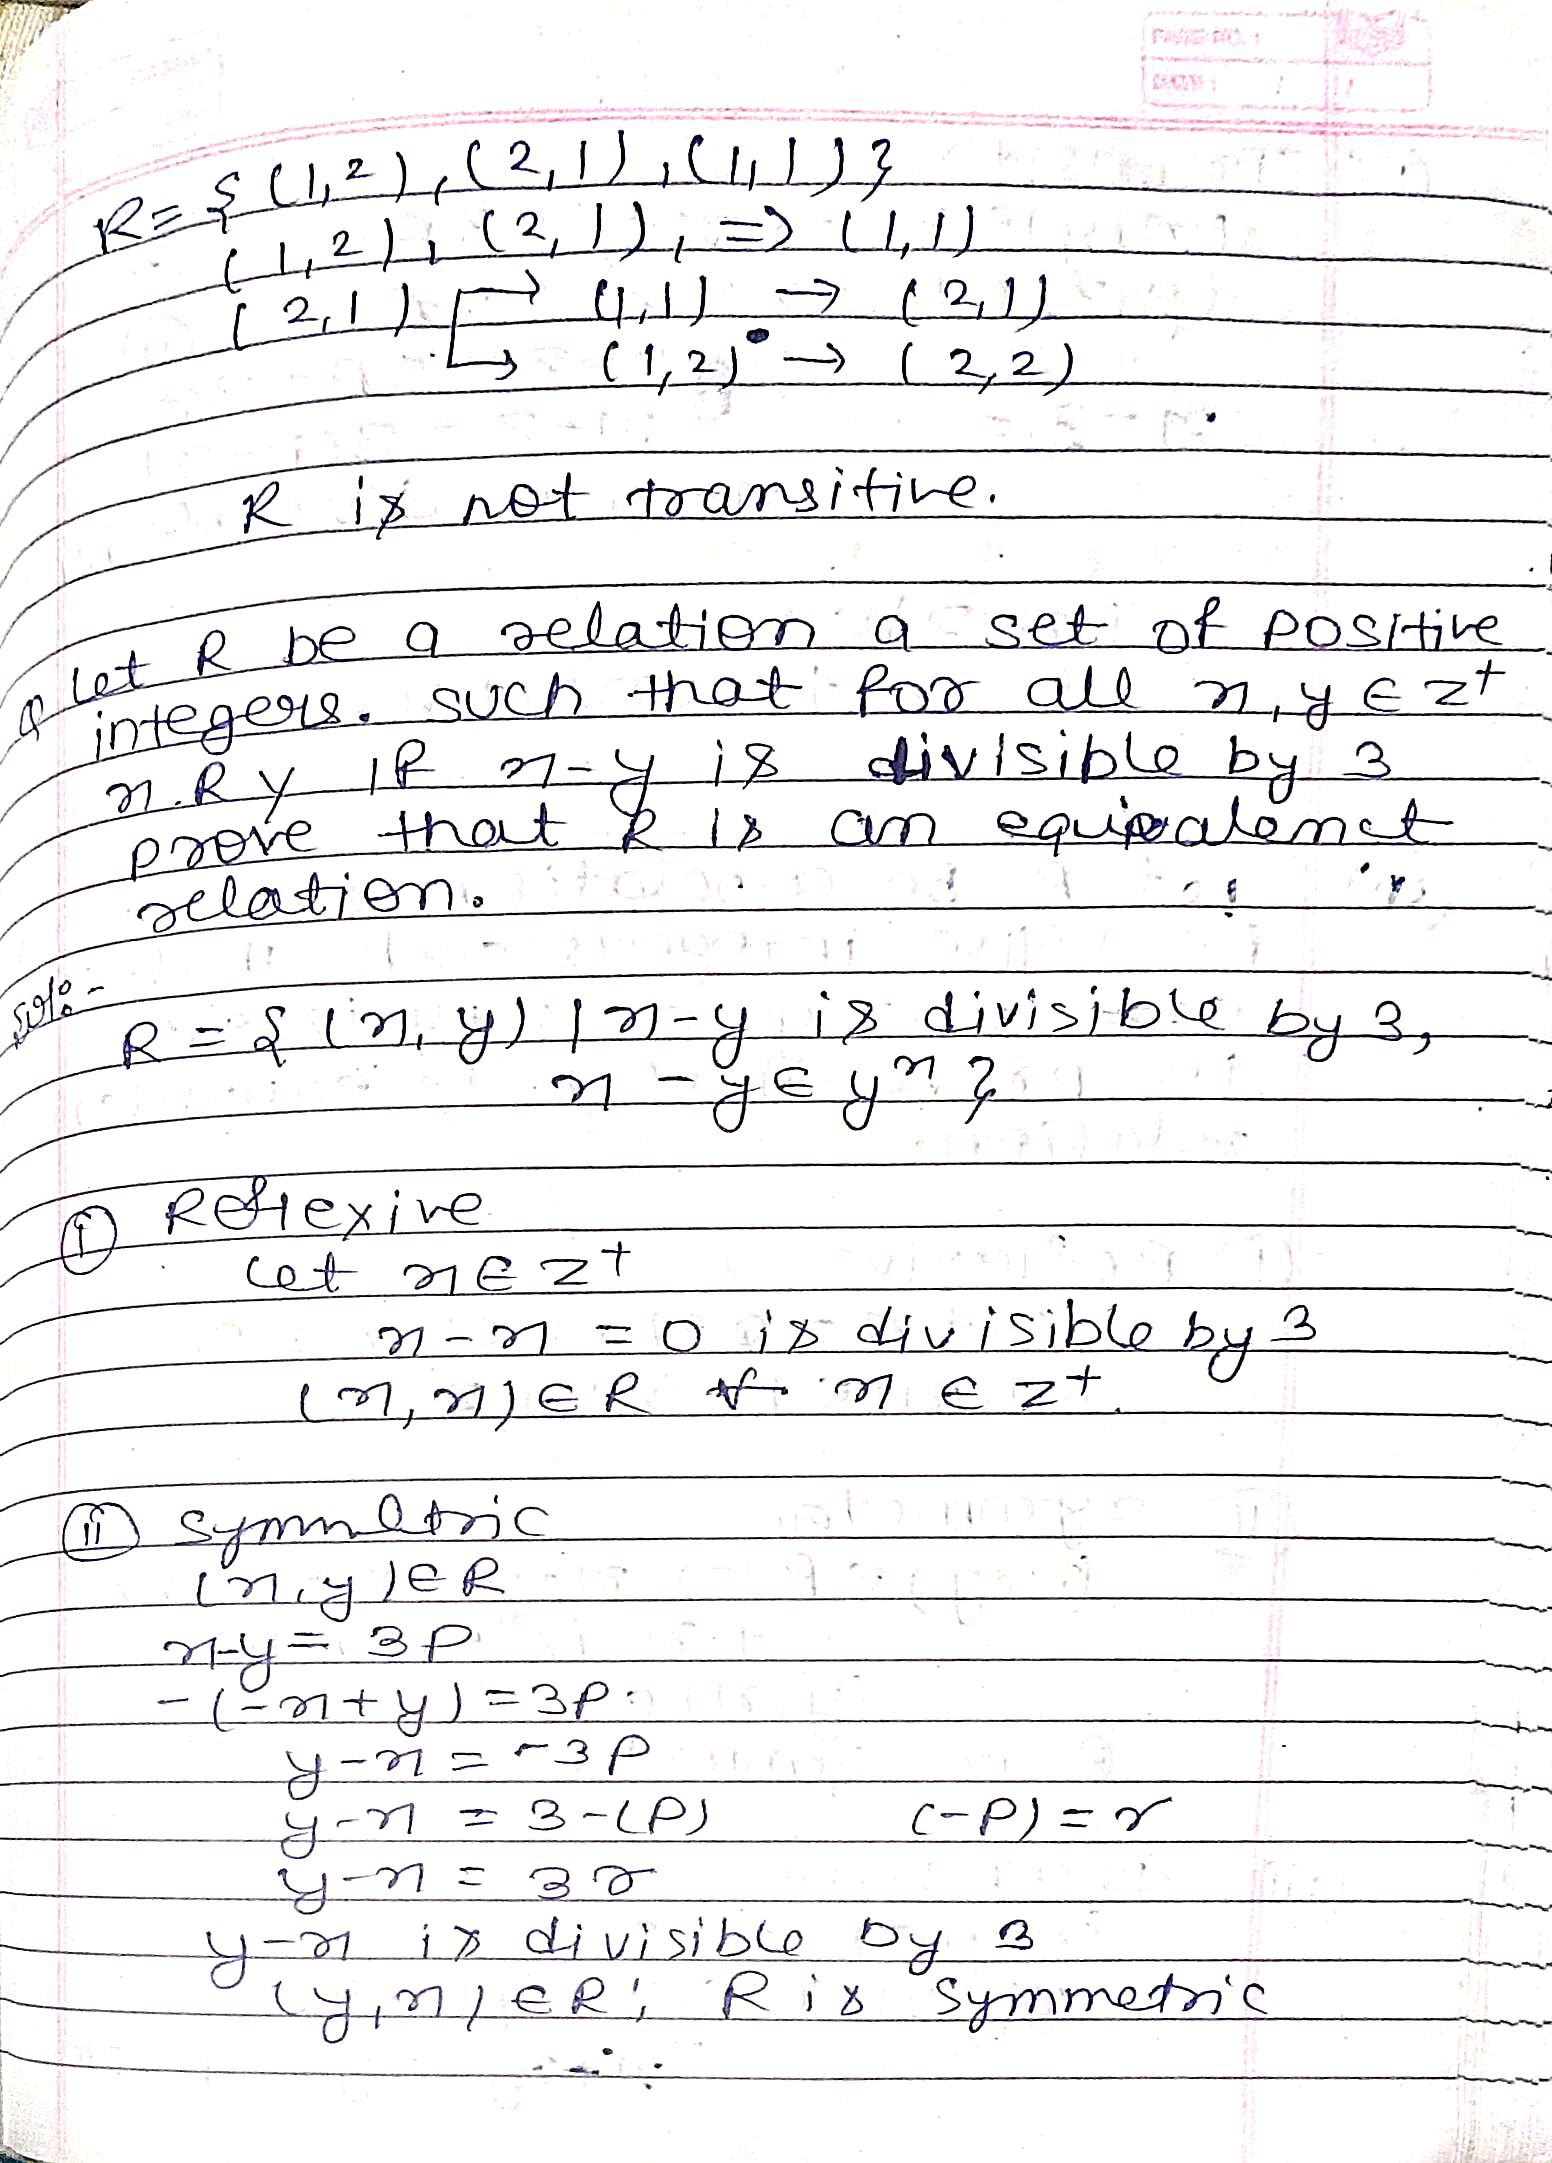 PAGE NO.:
R = { (1,2), (2,1), (1,1) }
(1,2), (2,1), => (1,1)
(2,1) → (1,1) → (2,1)
→ (1,2) → (2,2)
R is not transitive.
Q Let R be a relation a set of positive
integers. such that for all x, y ∈ z+
x.R y if x-y is divisible by 3
prove that R is an equivalenct
relation.
Sol:-
R = { (x, y) | x-y is divisible by 3,
x - y ∈ yx }
(i) Reflexive
Let x ∈ z+
x - x = 0 is divisible by 3
(x, x) ∈ R ∀ x ∈ z+.
(ii) Symmetric
(x, y) ∈ R
x-y = 3P
-(-x+y) = 3P
y-x = -3P
y-x = 3-(P) (-P) = r
y-x = 3r
y-x is divisible by 3
(y, x) ∈ R; R is symmetric